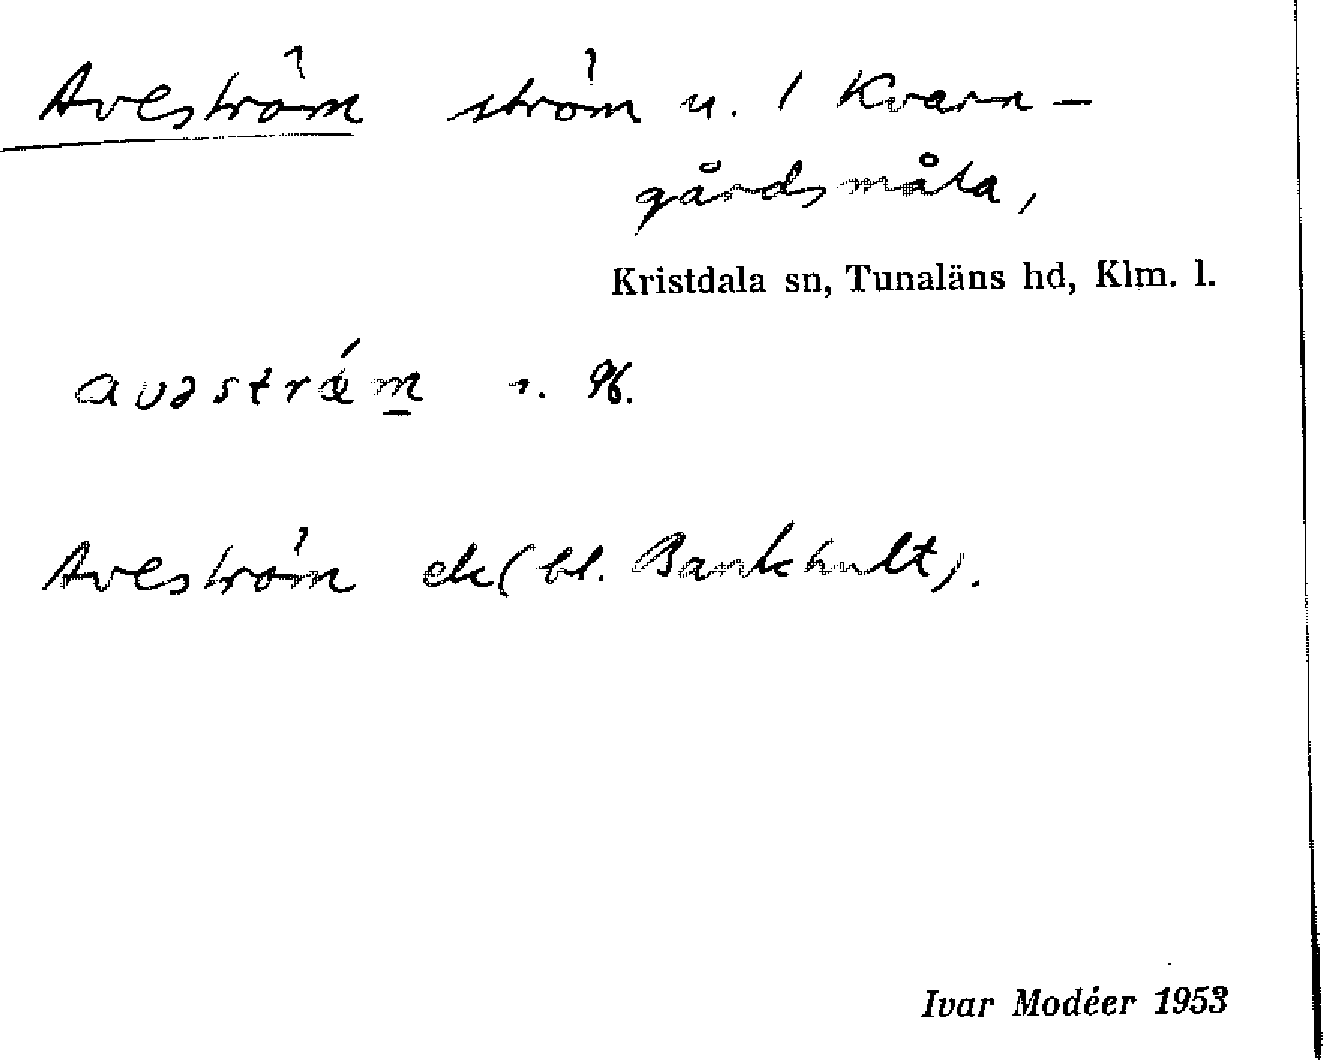 Aveström ström u. / Kvarn-
gårdsmåla,
Kristdala sn, Tunaläns hd, Klm. l.
avəstrǽm
Aveström ek (bl. Bankhult).
Ivar Modéer 1953